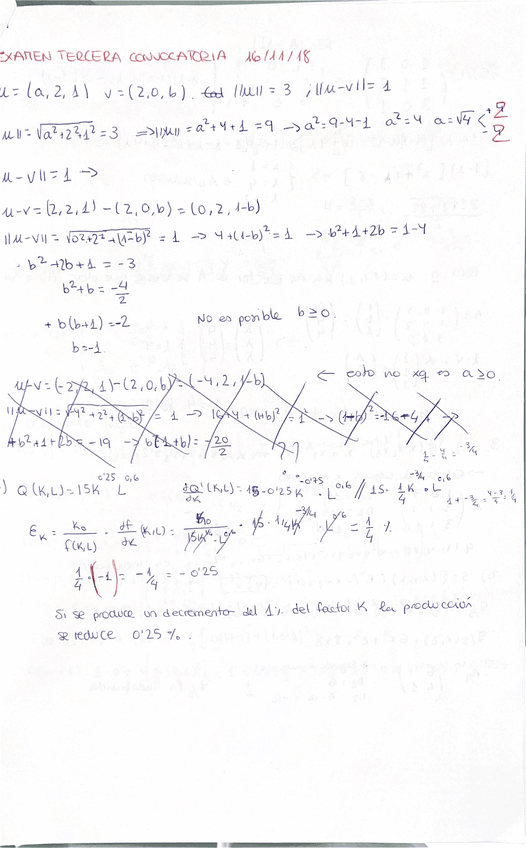 EXAMEN TERCERA CONVOCATORIA 16/11/18
u = (a, 2, 1) v = (2, 0, b). ||u|| = 3 , ||u-v|| = 1
u|| = √a²+2²+1² = 3 ⇒ ||u|| = a²+4+1 = 9 → a² = 9-4-1 a² = 4 a = √4 < +2 -2
u-v|| = 1 →
u-v = (2, 2, 1) - (2, 0, b) = (0, 2, 1-b)
||u-v|| = √0²+2²+(1-b)² = 1 → 4+(1-b)² = 1 → b²+1+2b = 1-4
b²+2b+1 = -3
b²+b = -4/2
+ b(b+1) = -2 No es posible b ≥ 0.
b = -1.
u-v = (-2, 2, 1) - (2, 0, b) = (-4, 2, 1-b) ← esto no xq es a ≥ 0.
||u-v|| = √-4²+2²+(1-b)² = 1 → 16+4+(1+b)² = 1² → (1+b)² = -16-4+ →
+b²+1+2b = -19 → b(1+b) = -20/2 ??
1/4 - 4/4 = -3/4
) Q(K,L) = 15K^0'25 L^0,6 dQ/dK (K,L) = 15·0'25K^-0'75 · L^0,6 // 15· 1/4 K^-3/4 · L^0,6
1 + -3/4 = 4-3/4 = 1/4
ƐK = K0/f(K,L) · df/dK (K,L) = K0/15K^1/4·L^0'6 · 15·1/4K^-3/4 · L^0'6 = 1/4 %
1/4 · (-1) = -1/4 = -0'25
Si se produce un decremento del 1% del factor K la producción
se reduce 0'25 %.